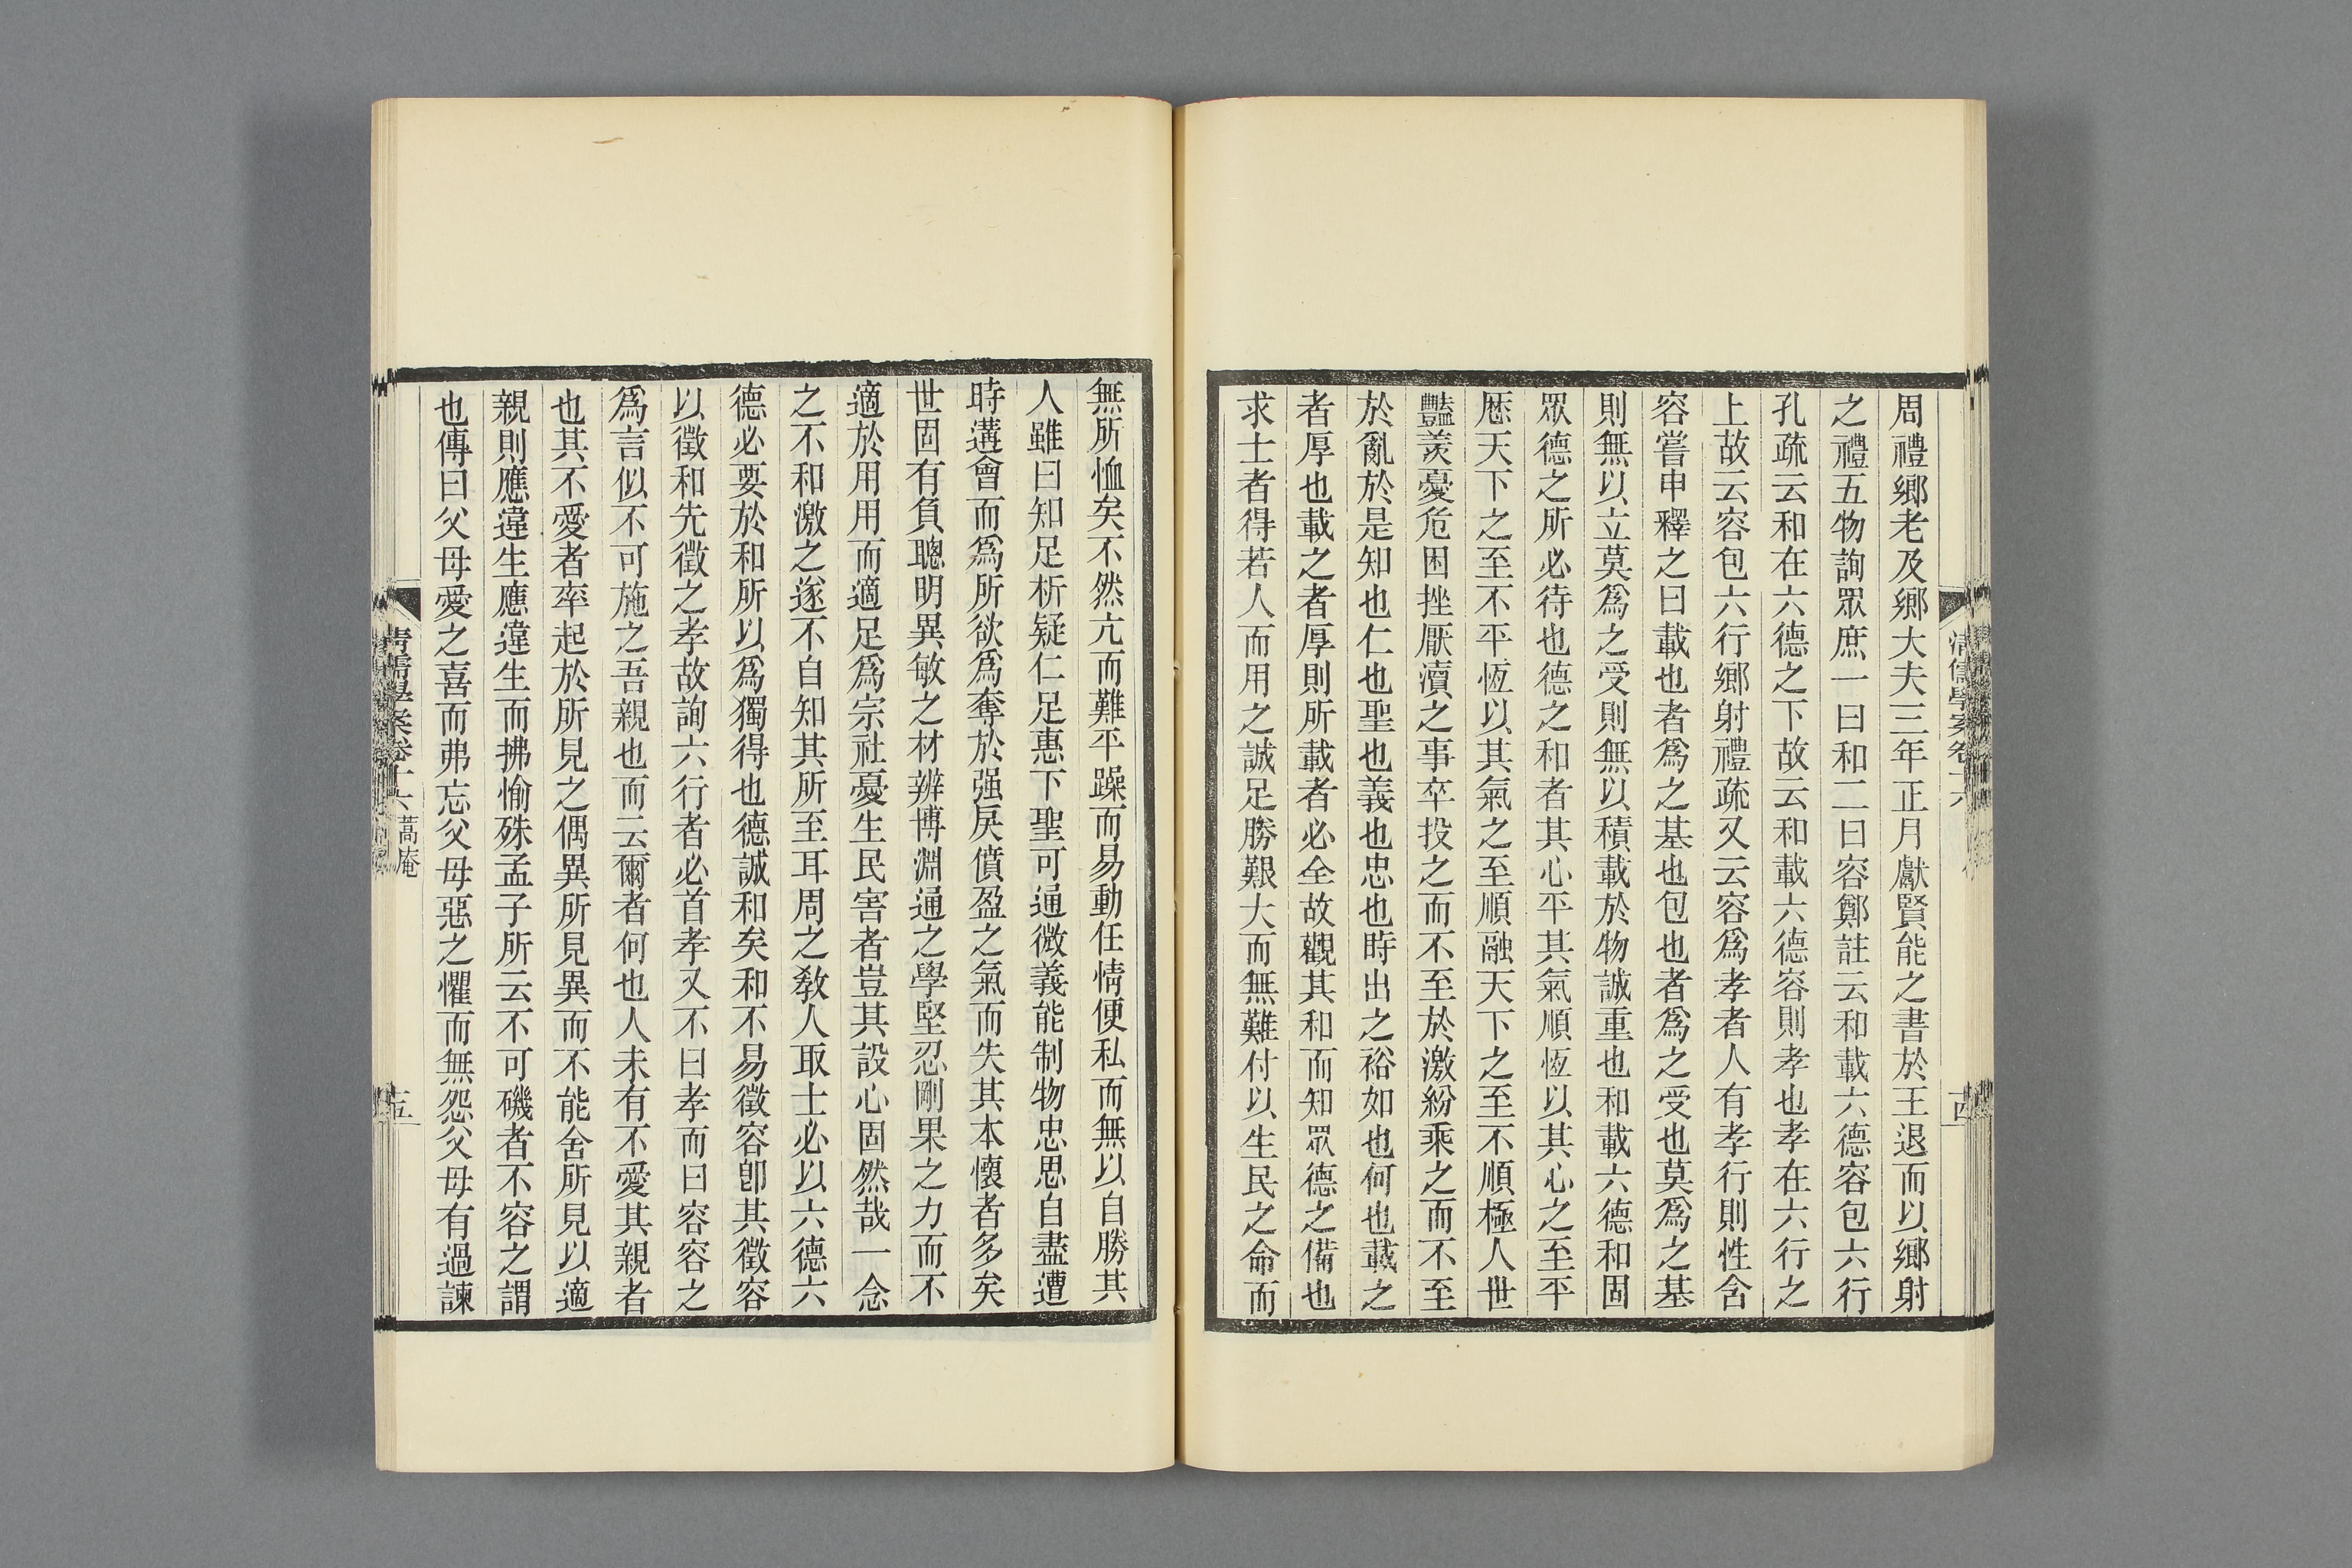 周禮鄉老及鄉大夫三年正月獻賢能之書於王退而以鄉射
之禮五物詢眾庶一曰和二曰容鄭註云和載六德容包六行
孔疏云和在六德之下故云和載六德容則孝也孝在六行之
上故云容包六行鄉射禮疏又云容爲孝者人有孝行則性含
容嘗申釋之曰載也者爲之基也包也者爲之受也莫爲之基
則無以立莫爲之受則無以積載於物誠重也和載六德和固
眾德之所必待也德之和者其心平其氣順恆以其心之至平
歷天下之至不平恆以其氣之至順融天下之至不順極人世
豔羨憂危困挫厭瀆之事卒投之而不至於激紛乘之而不至
於亂於是知也仁也聖也義也忠也時出之裕如也何也載之
者厚也載之者厚則所載者必全故觀其和而知眾德之備也
求士者得若人而用之誠足勝艱大而無難付以生民之命而
清儒學案卷十六
十四
無所恤矣不然亢而難平躁而易動任情便私而無以自勝其
人雖曰知足析疑仁足惠下聖可通微義能制物忠思自盡遭
時遘會而爲所欲爲奪於强戾憤盈之氣而失其本懷者多矣
世固有負聰明異敏之材辨博淵通之學堅忍剛果之力而不
適於用用而適足爲宗社憂生民害者豈其設心固然哉一念
之不和激之遂不自知其所至耳周之敎人取士必以六德六
德必要於和所以爲獨得也德誠和矣和不易徵容卽其徵容
以徵和先徵之孝故詢六行者必首孝又不曰孝而曰容容之
爲言似不可施之吾親也而云爾者何也人未有不愛其親者
也其不愛者率起於所見之偶異所見異而不能舍所見以適
親則應違生應違生而拂愉殊孟子所云不可磯者不容之謂
也傳曰父母愛之喜而弗忘父母惡之懼而無怨父母有過諫
清儒學案卷十六 蒿庵
十五